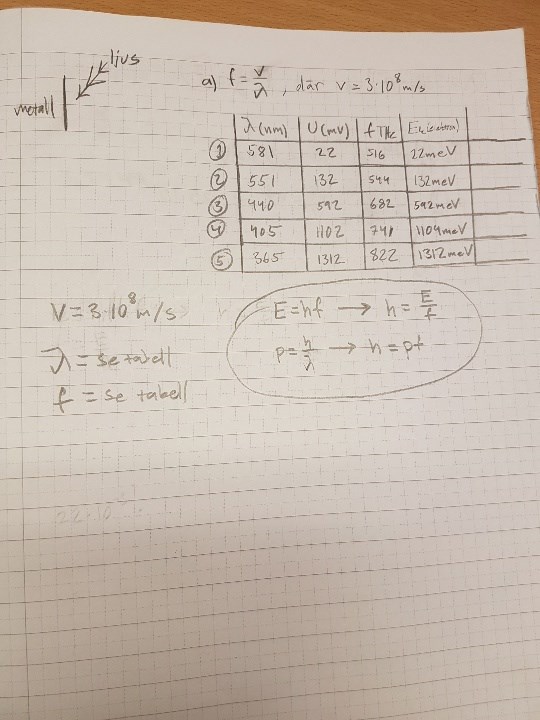 ljus
metall
a) f = v/λ , där v = 3·10⁸ m/s
λ(nm) U(mV) f THz
① 581 22 516 22meV
② 551 132 544 132meV
③ 440 592 682 592meV
④ 405 1102 741 1104meV
⑤ 365 1312 822 1312meV
V = 3·10⁸ m/s
λ = se tabell
f = se tabell
E = hf → h = E/f
p = h/λ → h = pλ